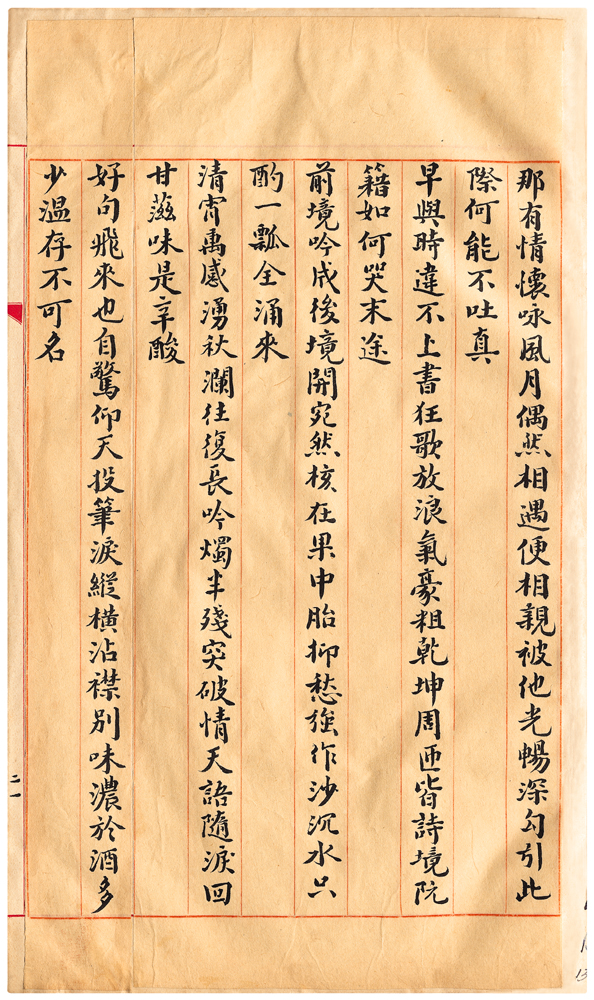 那有情懷咏風月偶然相遇便相親被他光暢深勾引此
際何能不吐真
早與時違不上書狂歌放浪氣豪粗乾坤周匝皆詩境阮
籍如何哭末途
前境吟成後境開宛然核在果中胎抑愁強作沙沉水只
酌一瓢全涌來
清宵萬感湧秋瀾往復長吟燭半殘突破情天語隨淚回
甘滋味是辛酸
好句飛來也自驚仰天投筆淚縱橫沾襟別味濃於酒多
少溫存不可名
二一